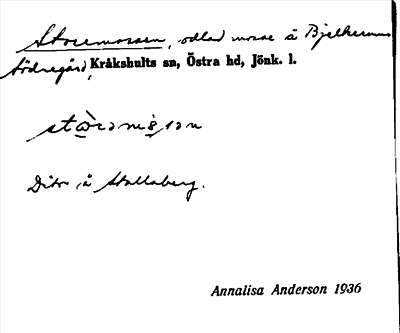 Storemossen, odlad mosse å Bjelkerums
Södregård, Kråkshults sn, Östra hd, Jönk. l.
Dito å Stallaberg.
Annalisa Anderson 1936